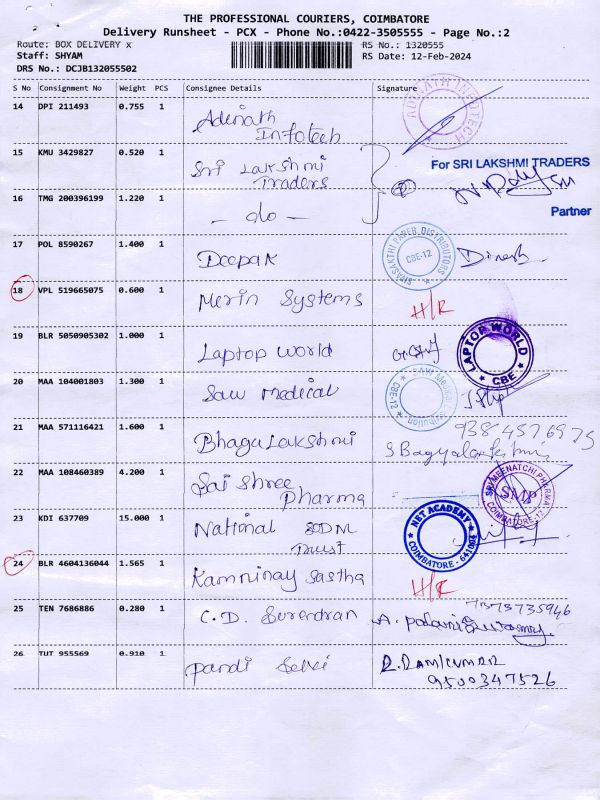 THE PROFESSIONAL COURIERS, COIMBATORE
Delivery Runsheet - PCX - Phone No.:0422-3505555 - Page No.:2
Route: BOX DELIVERY x
RS No.: 1320555
Staff: SHYAM
RS Date: 12-Feb-2024
DRS No.: DCJB132055502
S No Consignment No Weight PCS Consignee Details Signature
14 DPI 211493 0.755 1 Adinath
Infotech
15 KMU 3429827 0.520 1 Sri Lakshmi
Traders
For SRI LAKSHMI TRADERS
16 TMG 200396199 1.220 1 - do -
Partner
17 POL 8590267 1.400 1 Deepak
SIVASAKTHI PAPER DISTRIBUTORS
CBE-12
Dinesh
18 VPL 519665075 0.600 1 Merin Systems H/R
19 BLR 5050905302 1.000 1 Laptop World
LAPTOP WORLD
CBE
20 MAA 104001803 1.300 1 Saw Medical
CBE-12
21 MAA 571116421 1.600 1 Bhagu Lakshmi
9384576975
22 MAA 108460389 4.200 1 Sai Shree
Pharma
SRI MEENATCHI PHARMA
SMP
COIMBATORE
23 KDI 637709 15.000 1 National SODM
Trust
NET ACADEMY
COIMBATORE - 641004
24 BLR 4604136044 1.565 1 Kamninay Sastha H/R
25 TEN 7686886 0.280 1 C.D. Surendran
7373735946
26 TUT 955569 0.910 1 Pandi Selvi R.RAMKUMAR
9500347526